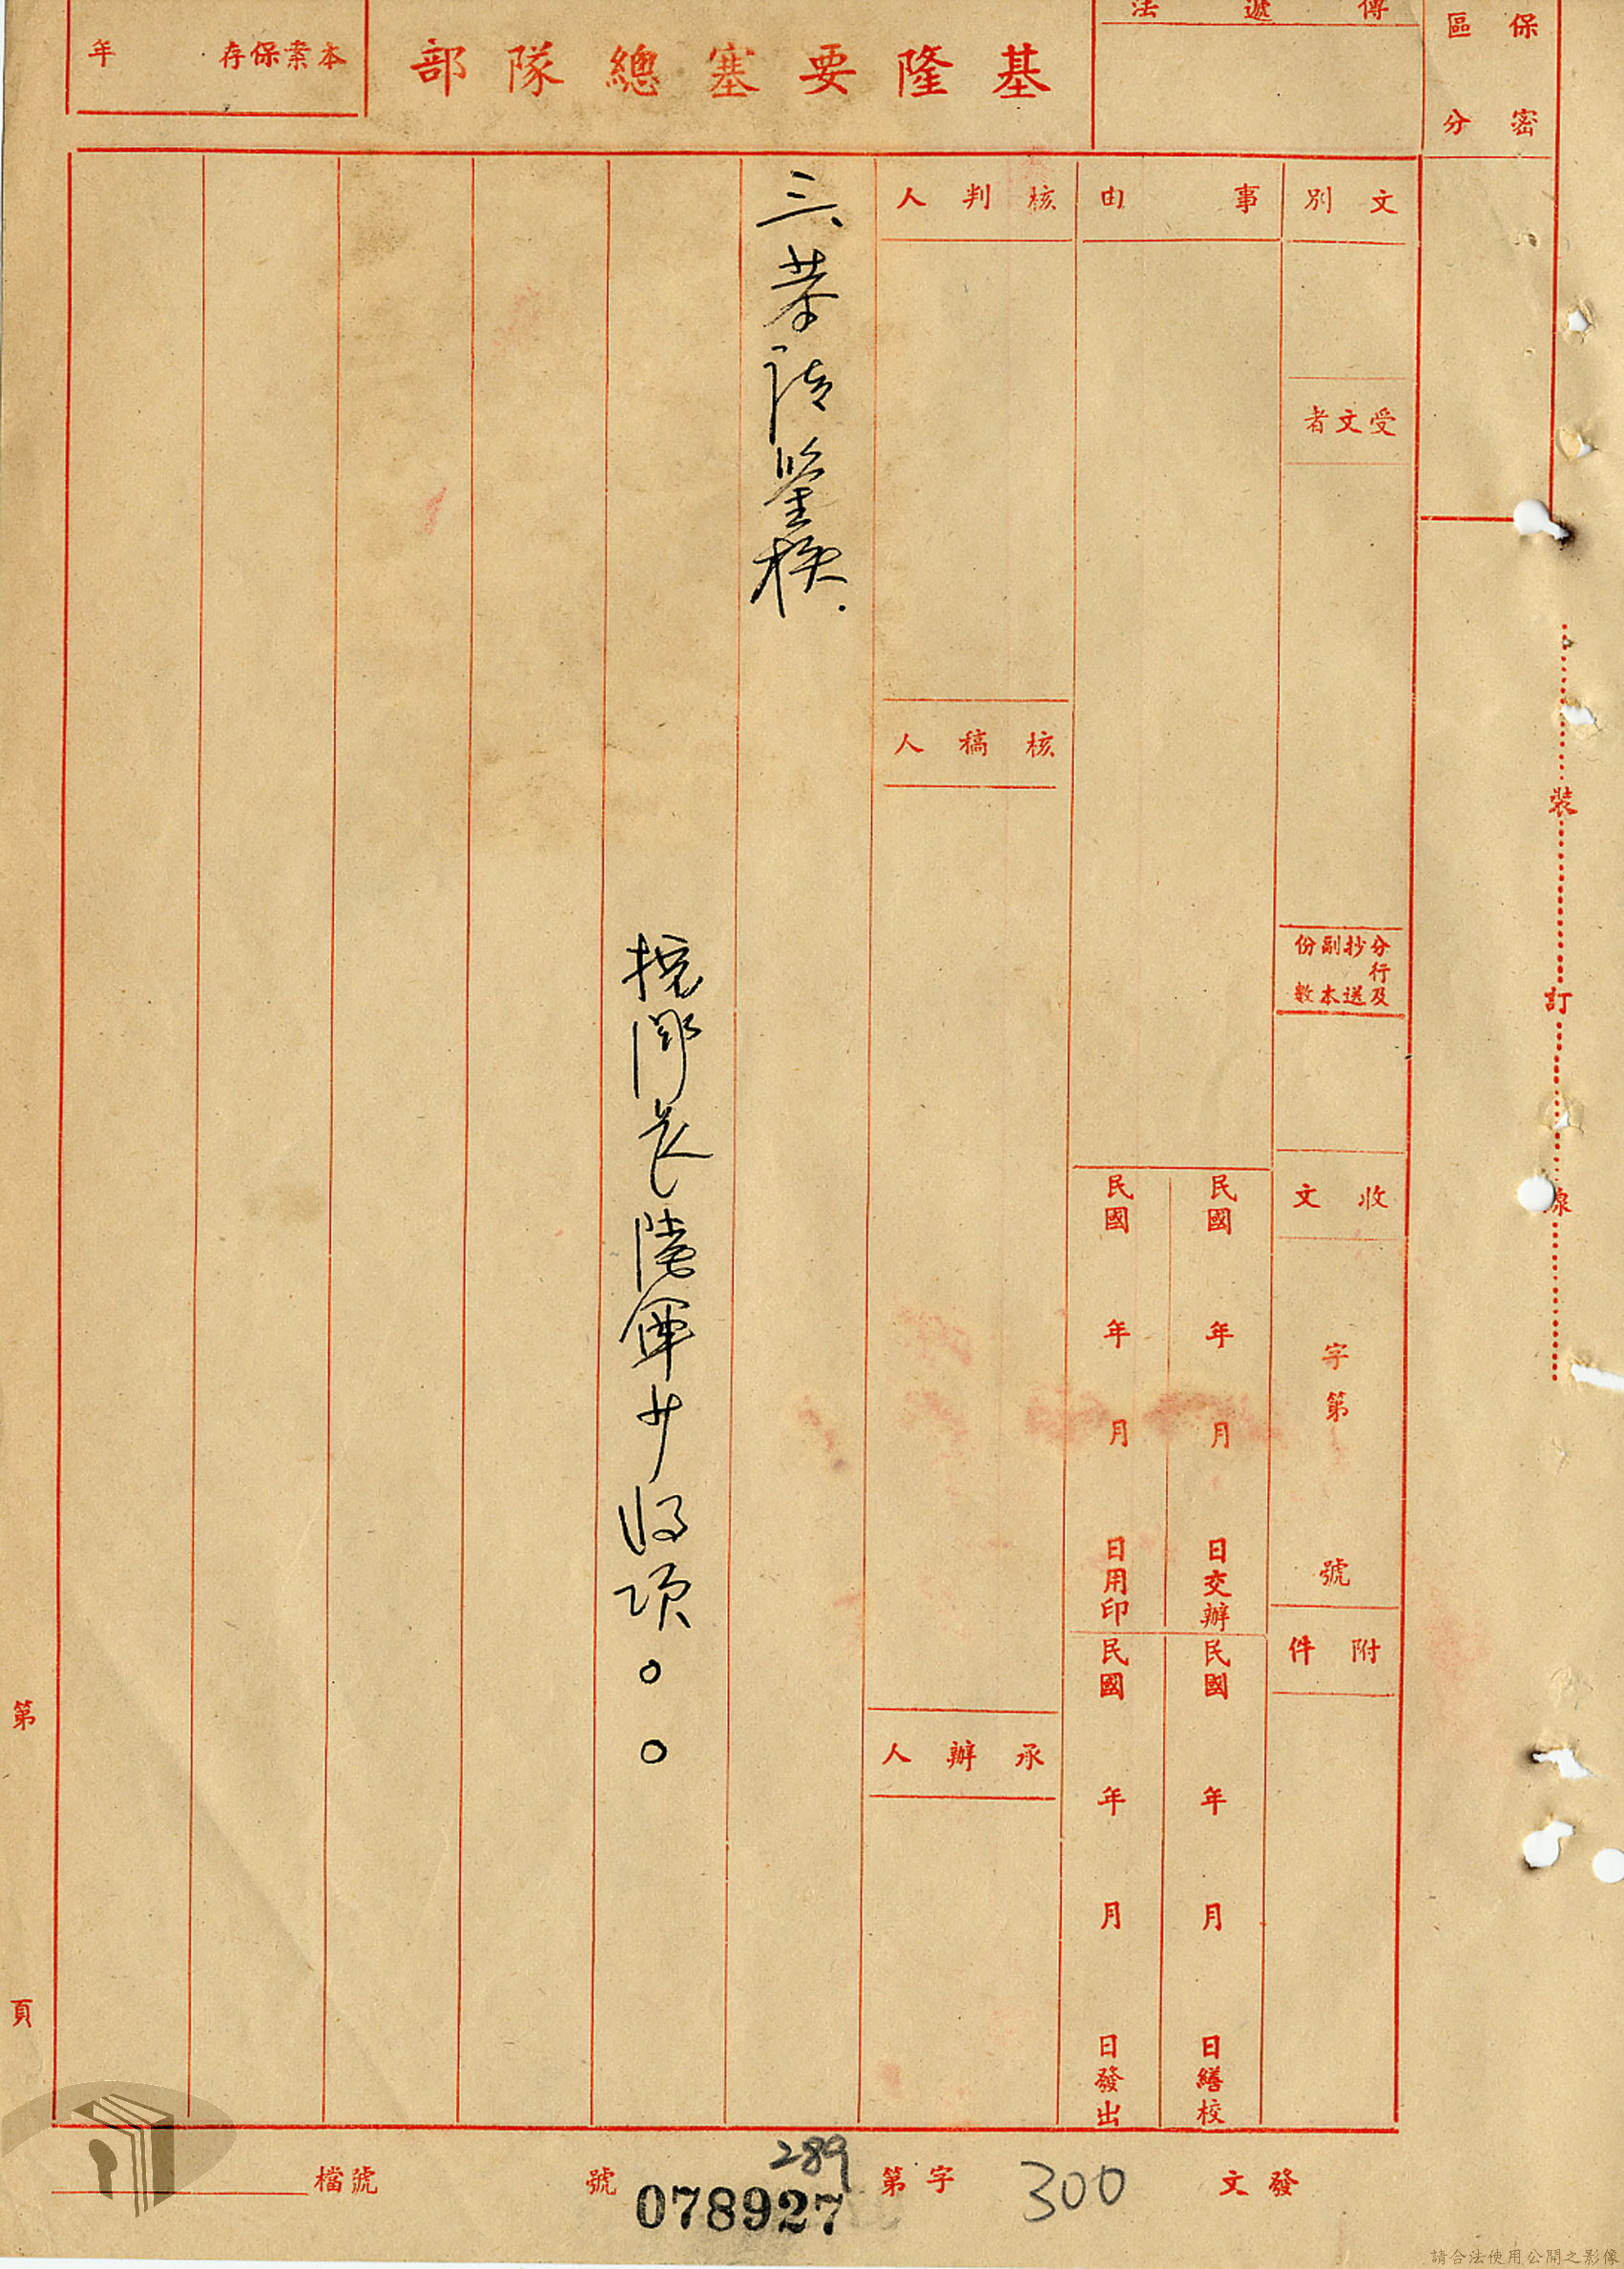 保密
區分
傳遞法
基隆要塞總隊部
本案保存 年
文別
受文者
分行及抄送副本份數
收文
字第 號
附件
事由
民國 年 月 日交辦
民國 年 月 日繕校
民國 年 月 日用印
民國 年 月 日發出
核判人
核稿人
承辦人
三、恭請鑒核.
陸軍少將項○○
裝訂線
第 頁
發文 300 字第 號
289
078927
檔號
請合法使用公開之影像